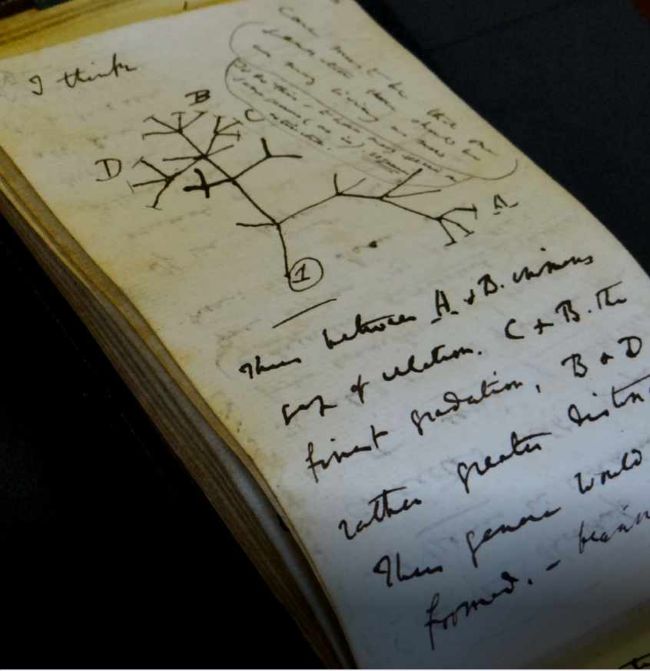 I think
Case must be that
one generation then should be
as many living as now
To do this & to have many species in
same genus (as is)
B
C
D
A
1
Thus between A & B. immens
gap of relation. C & B. The
finest gradation, B & D
rather greater distin
Thus genera would
formed. — bearin